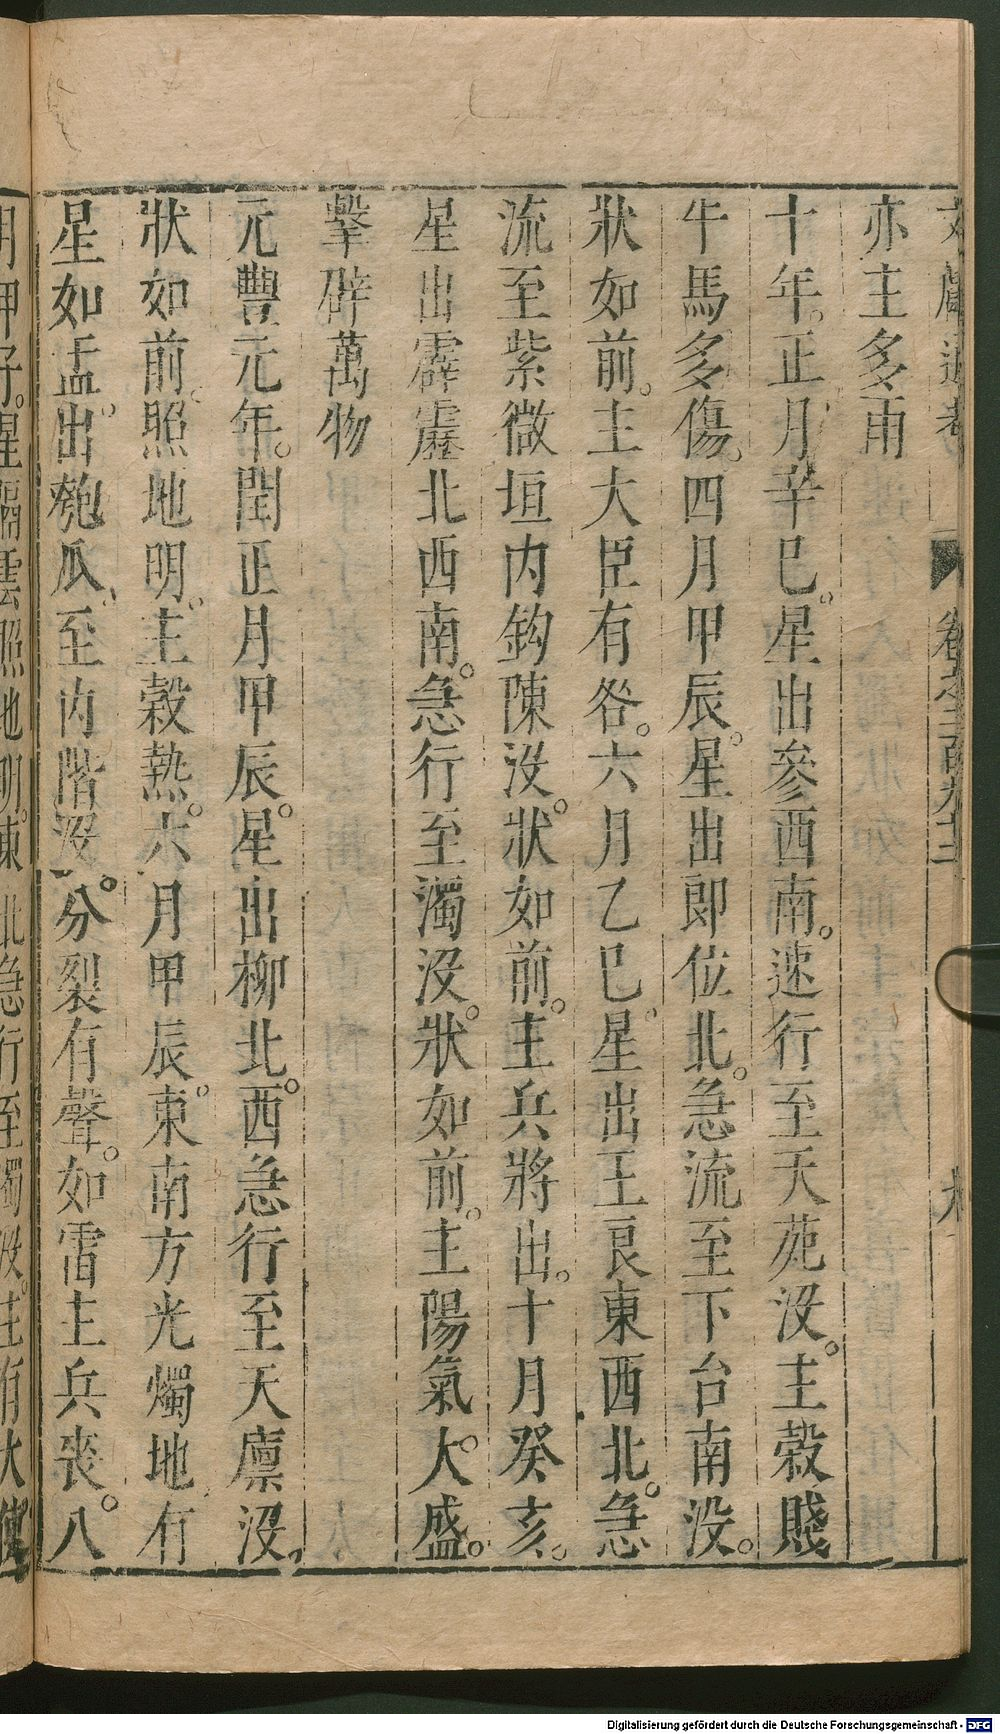 亦主多雨
十年。正月辛巳。星出參西南。速行至天苑沒。主穀賤
牛馬多傷。四月甲辰。星出郎位北。急流至下台南没。
狀如前。主大臣有咎。六月乙巳。星出王良東西北。急
流至紫微垣内鈎陳没。狀如前。主兵將出。十月癸亥。
星出霹靂北西南。急行至濁沒。狀如前。主陽氣大盛。
擊礔萬物
元豐元年。閏正月甲辰。星出柳北。西急行至天廪沒。
狀如前。照地明。主穀熱。六月甲辰。東南方光燭地有
星如盂。出匏瓜。至内階沒。分裂有聲。如雷主兵喪。八
北急行至濁沒。主有大
Digitalisierung gefördert durch die Deutsche Forschungsgemeinschaft - DFG